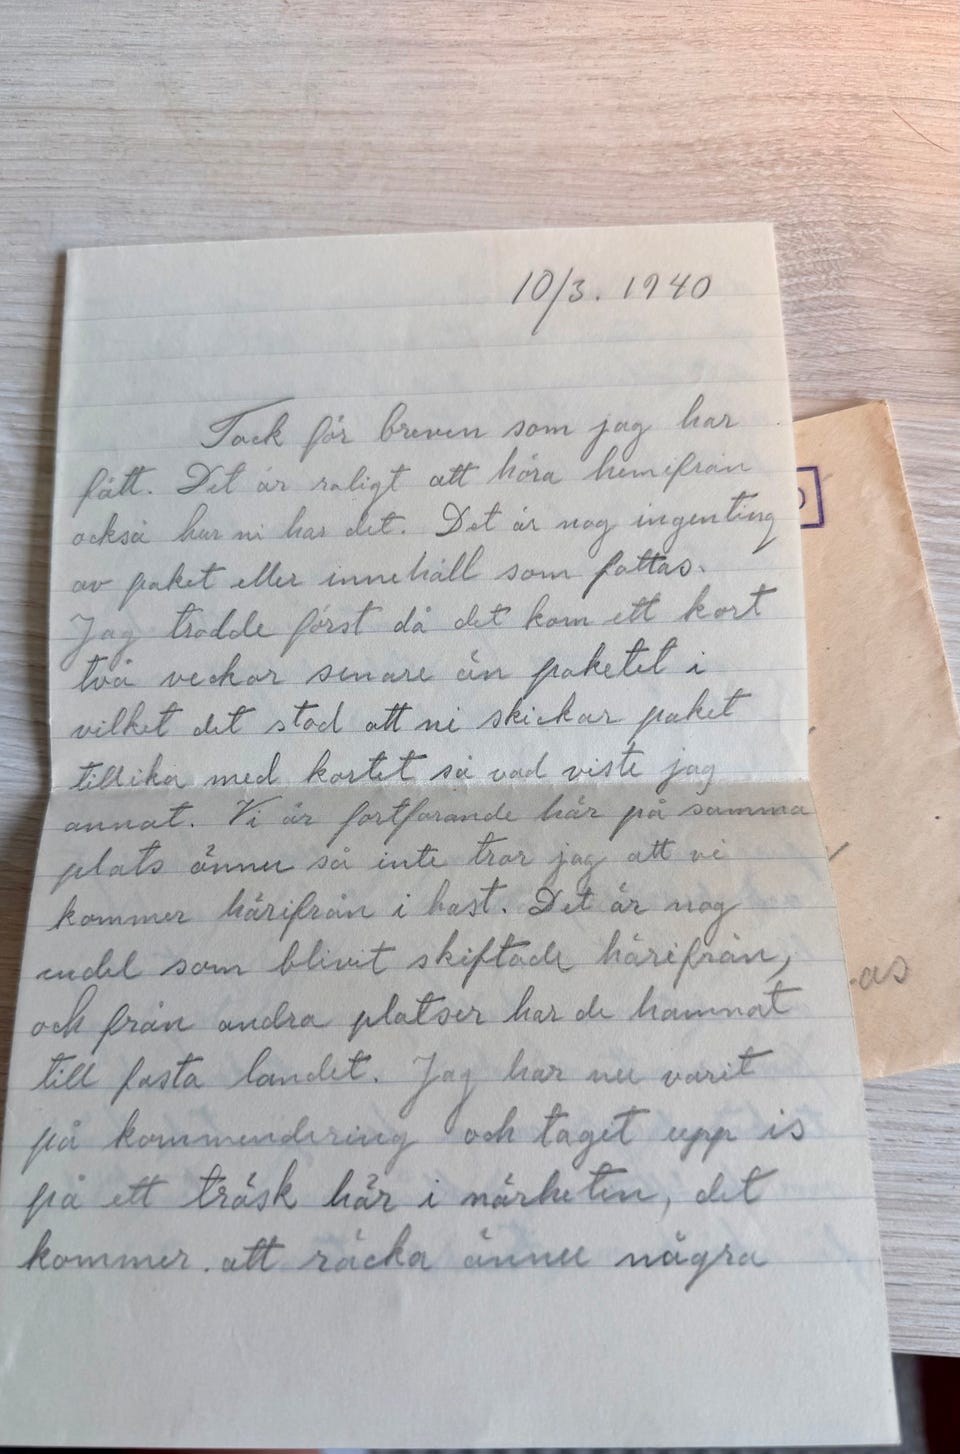 10/3. 1940
Tack för breven som jag har
fått. Det är roligt att höra hemifrån
också hur ni har det. Det är nog ingenting
av paket eller innehåll som fattas.
Jag trodde först då det kom ett kort
två veckor senare än paketet i
vilket det stod att ni skickar paket
tillika med kortet så vad viste jag
annat. Vi är fortfarande här på samma
plats ännu så inte tror jag att vi
kommer härifrån i hast. Det är nog
endel som blivit skiftade härifrån,
och från andra platser har de hamnat
till fasta landet. Jag har nu varit
på kommendering och taget upp is
på ett träsk här i närheten, det
kommer att räcka ännu några
as